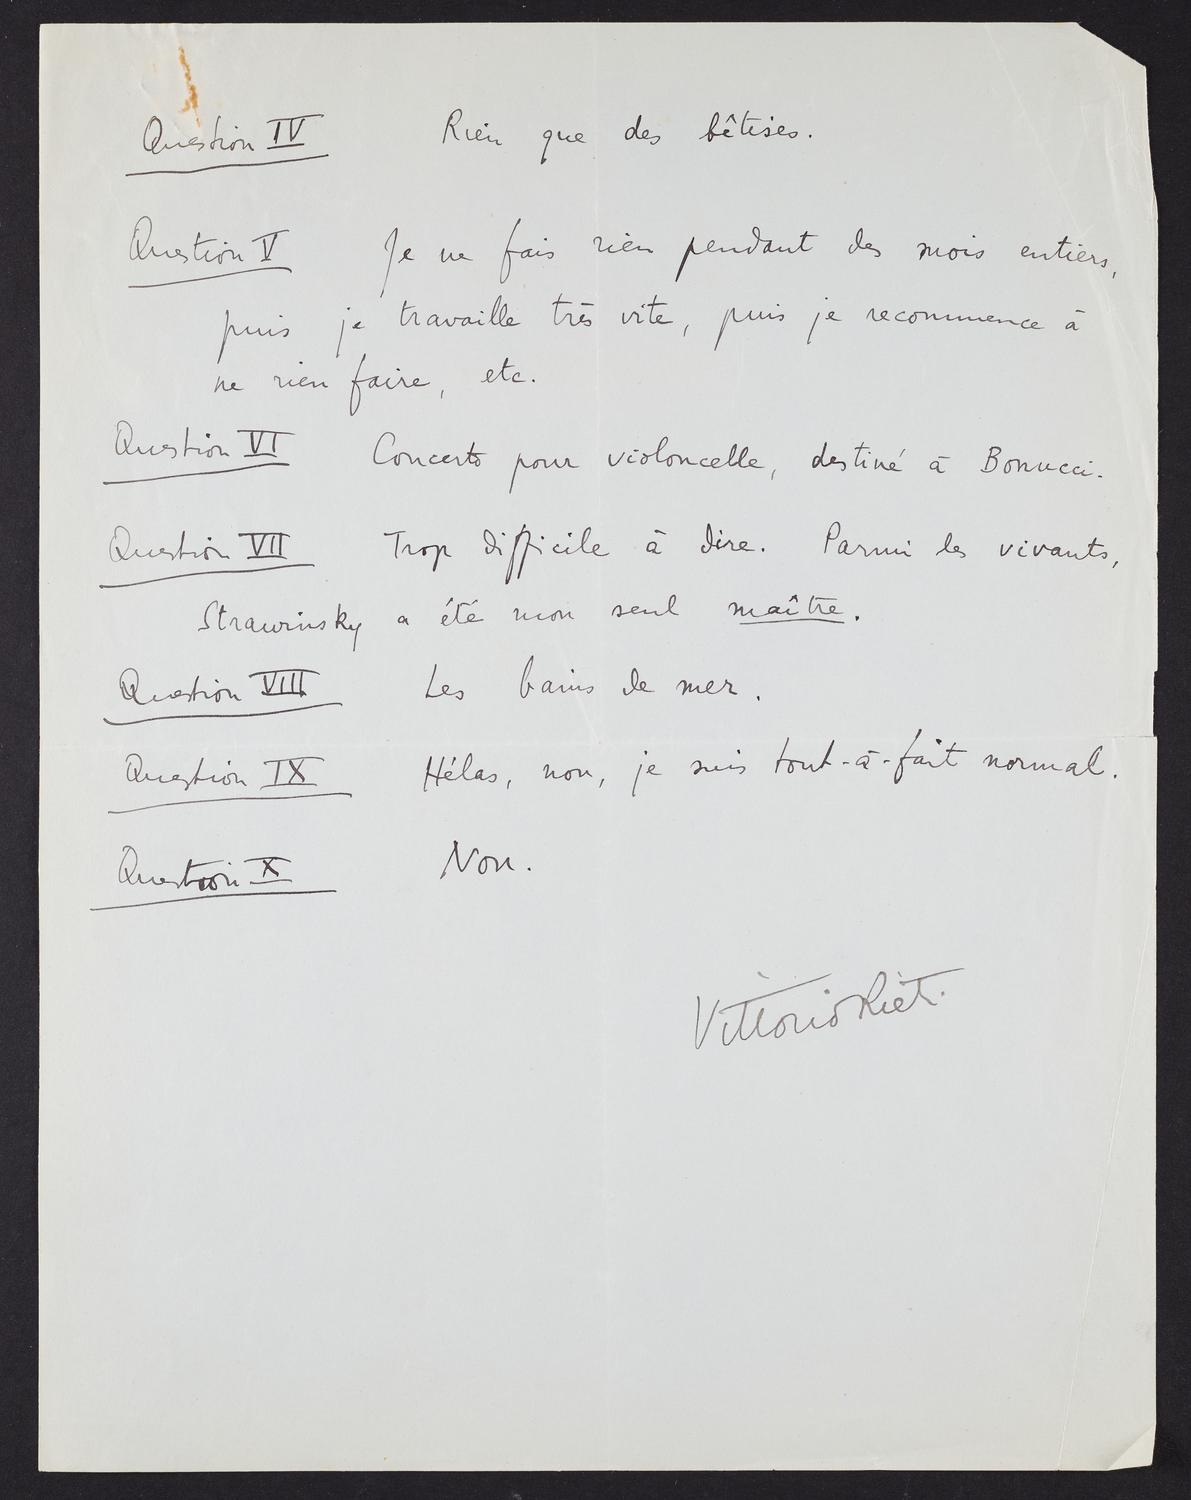 Question IV Rien que des bêtises.
Question V Je ne fais rien pendant des mois entiers,
puis je travaille très vite, puis je recommence à
ne rien faire, etc.
Question VI Concerto pour violoncelle, destiné à Bonucci.
Question VII Trop difficile à dire. Parmi les vivants,
Strawinsky a été mon seul maître.
Question VIII Les bains de mer.
Question IX Hélas, non, je suis tout-à-fait normal.
Question X Non.
Vittorio Rieti